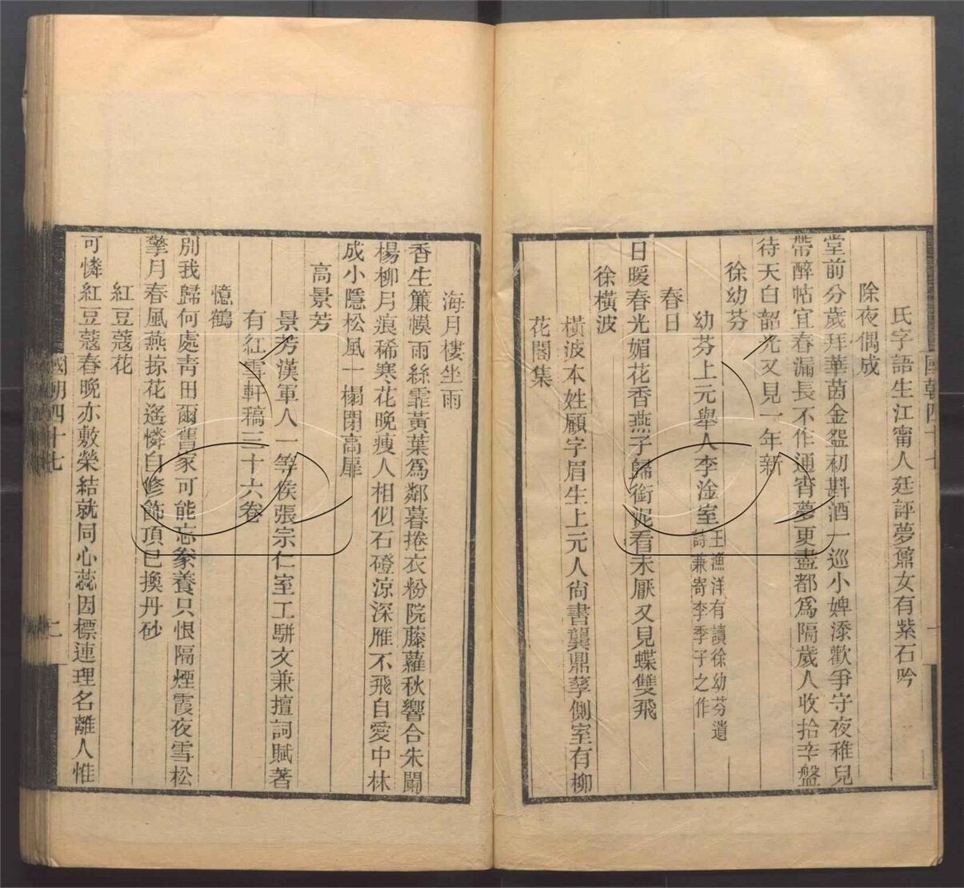 氏字語生江甯人廷評夢鼐女有紫石吟
除夜偶成
堂前分歲拜華茵金盌初斟酒一巡小婢添歡爭守夜稚兒
帶醉帖宜春漏長不作通宵夢更盡都為隔歲人收拾辛盤
待天白韶光又見一年新
徐幼芬
幼芬上元舉人李淦室王漁洋有讀徐幼芬遺詩兼寄李季子之作
春日
日暖春光媚花香燕子歸銜泥看未厭又見蝶雙飛
徐橫波
橫波本姓顧字眉生上元人尚書龔鼎孳側室有柳
花閣集
國朝四十七
一
海月樓坐雨
香生簾幙雨絲霏黃葉為鄰暮捲衣粉院藤蘿秋響合朱闌
楊柳月痕稀寒花晚瘦人相似石磴涼深雁不飛自愛中林
成小隱松風一榻閉高扉
高景芳
景芳漢軍人一等侯張宗仁室工駢文兼擅詞賦著
有紅雪軒稿三十六卷
憶鶴
別我歸何處青田爾舊家可能忘豢養只恨隔煙霞夜雪松
擎月春風燕掠花遙憐自修飾頂已換丹砂
紅豆蔻花
可憐紅豆蔻春晚亦敷榮結就同心蕊因標連理名離人惟
國朝四十七
二